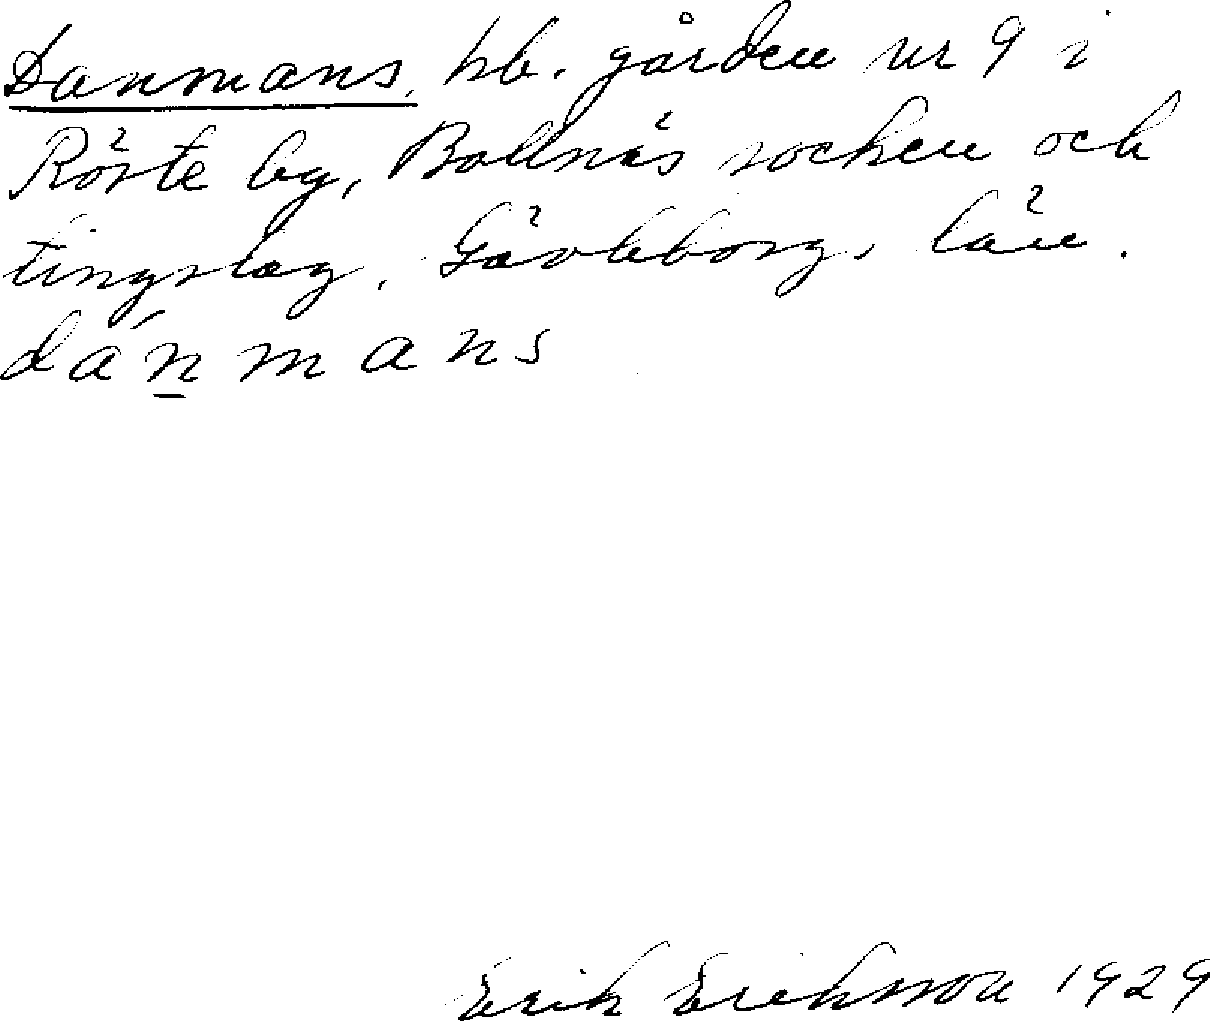 Danmans, hb. gården nr 9 i
Röste by, Bollnäs socken och
tingslag, Gävleborgs län.
dánmans
Erik Eriksson 1929